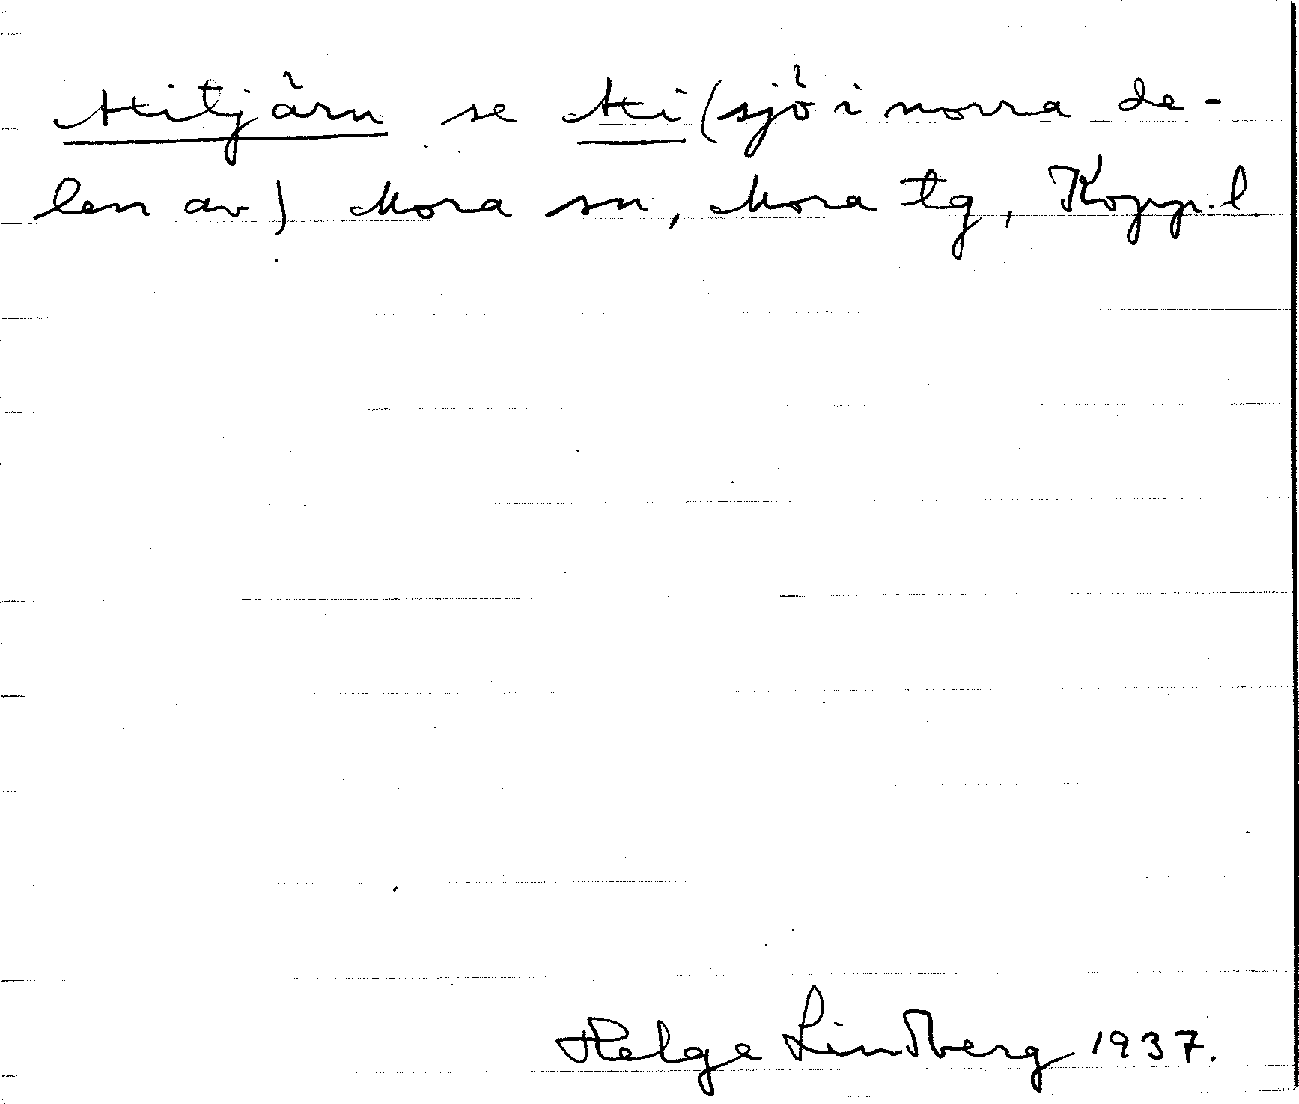 Hitjärn se Hi (sjö i norra de-
len av) Mora sn, Mora tg, Kopp. l.
Helge Lindberg 1937.